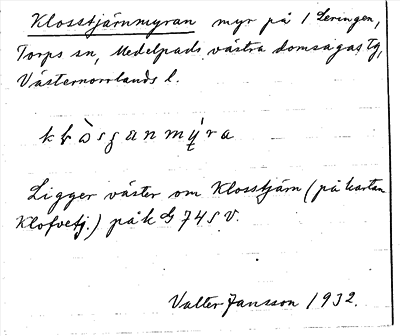 Klosstjärnmyran myr på 1 Leringen,
Torps sn, Medelpads västra domsagas tg,
Västernorrlands l.
Ligger väster om Klosstjärn (på kartan
Klofvetj.) på k G 74 S V.
Valter Jansson 1932.